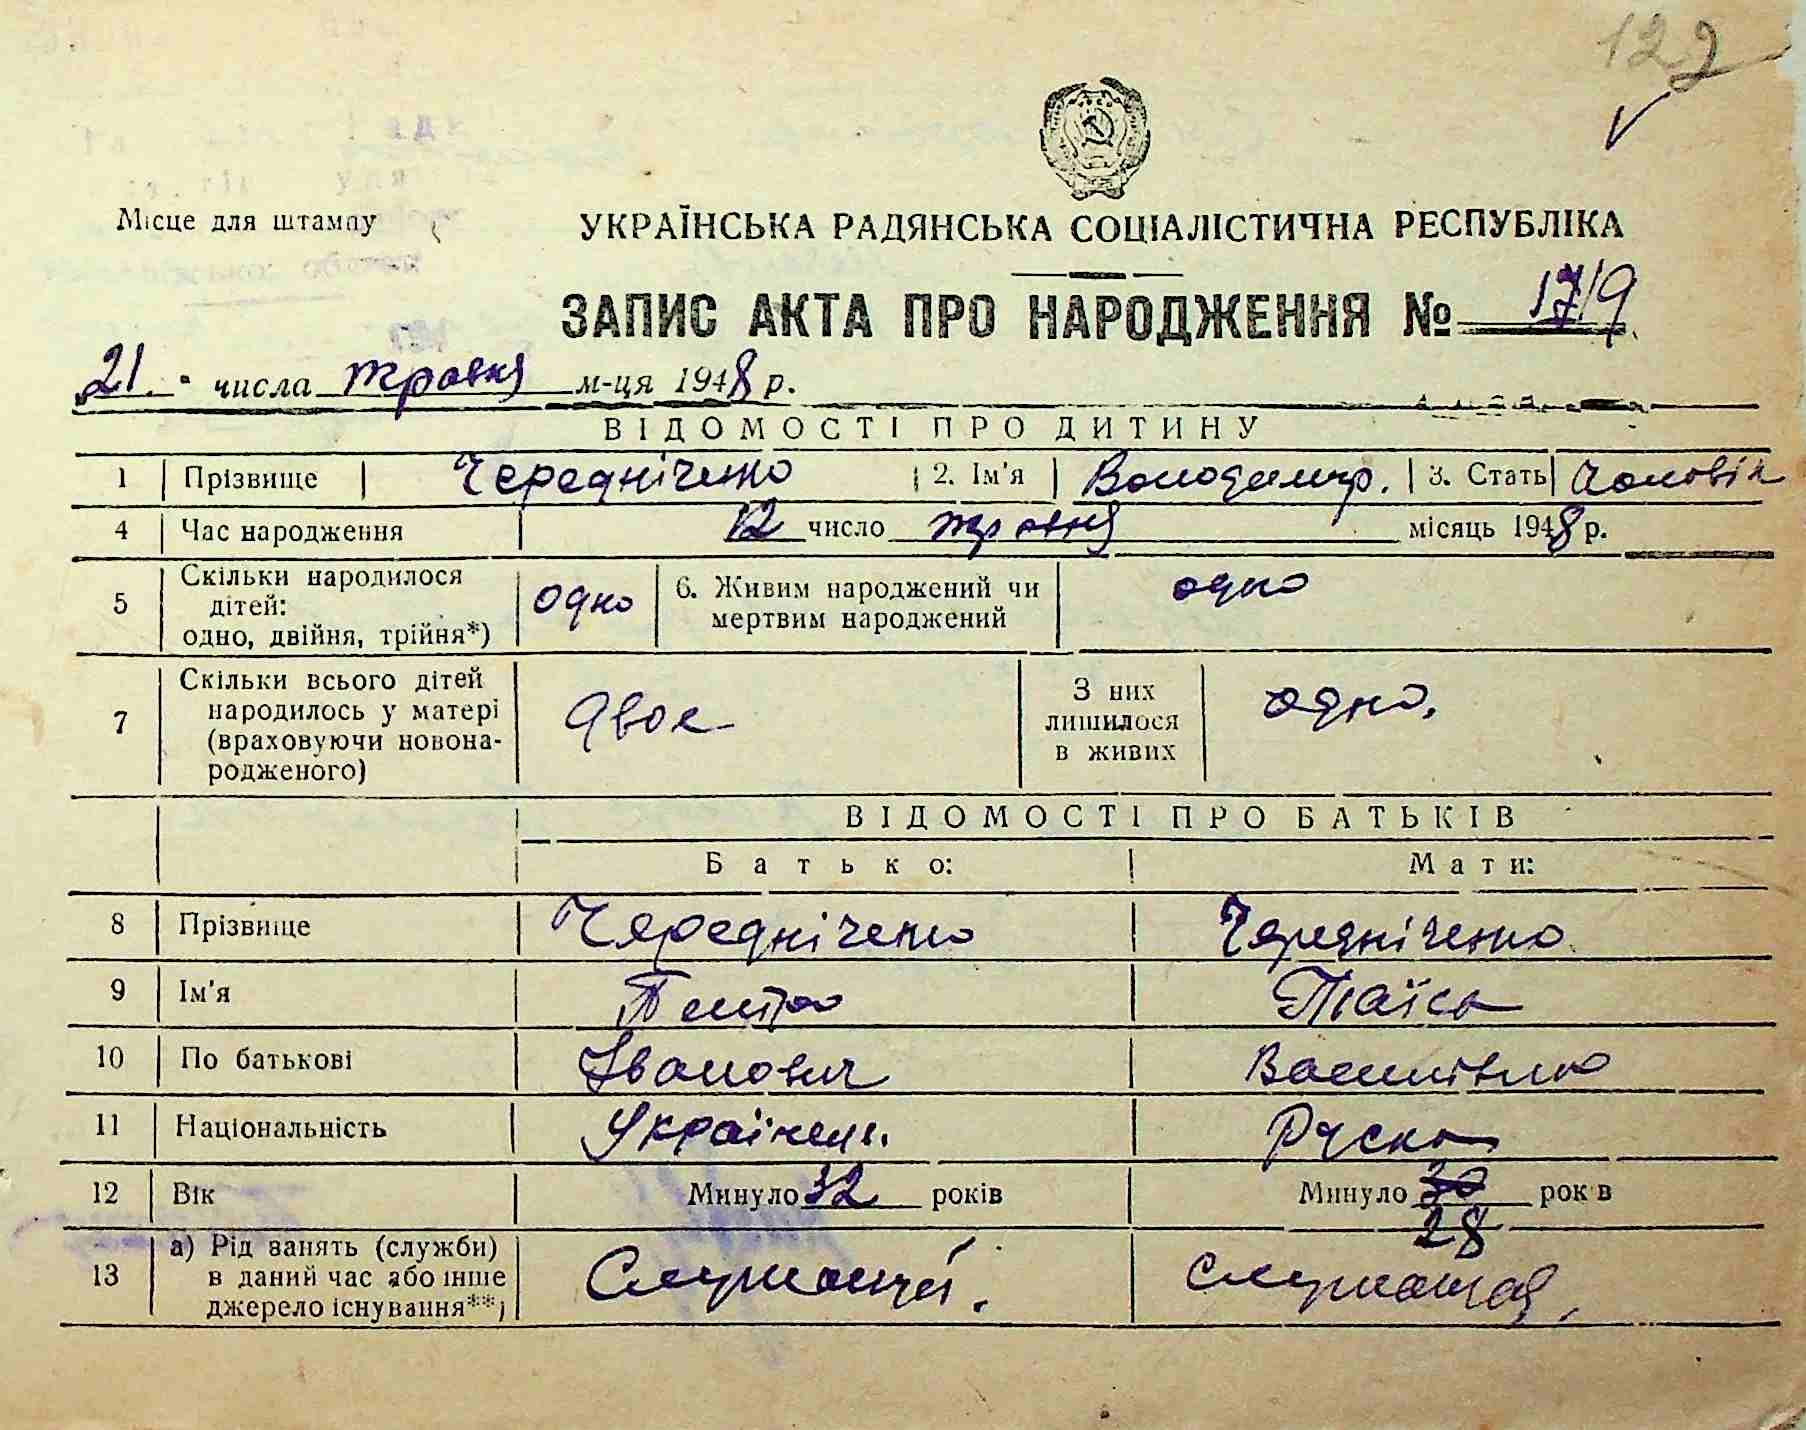 122
Місце для штампу
УКРАЇНСЬКА РАДЯНСЬКА СОЦІАЛІСТИЧНА РЕСПУБЛІКА
ЗАПИС АКТА ПРО НАРОДЖЕННЯ № 1719
21 числа травня м-ця 1948 р.
ВІДОМОСТІ ПРО ДИТИНУ
1 Прізвище Чередніченко 2. Ім'я Володимир. 3. Стать Чоловік
4 Час народження 12 число травня місяць 1948 р.
5 Скільки народилося дітей: одно, двійня, трійня*) одно 6. Живим народжений чи мертвим народжений одно
7 Скільки всього дітей народилось у матері (враховуючи новонародженого) двое З них лишилося в живих одно.
ВІДОМОСТІ ПРО БАТЬКІВ
Батько: Мати:
8 Прізвище Чередніченко Чередніченко
9 Ім'я Петро Таїса
10 По батькові Іванович Василівна
11 Національність Українець. Руска
12 Вік Минуло 32 років Минуло 30 років
28
13 а) Рід занять (служби) в даний час або інше джерело існування**) Служащий. Служащая.